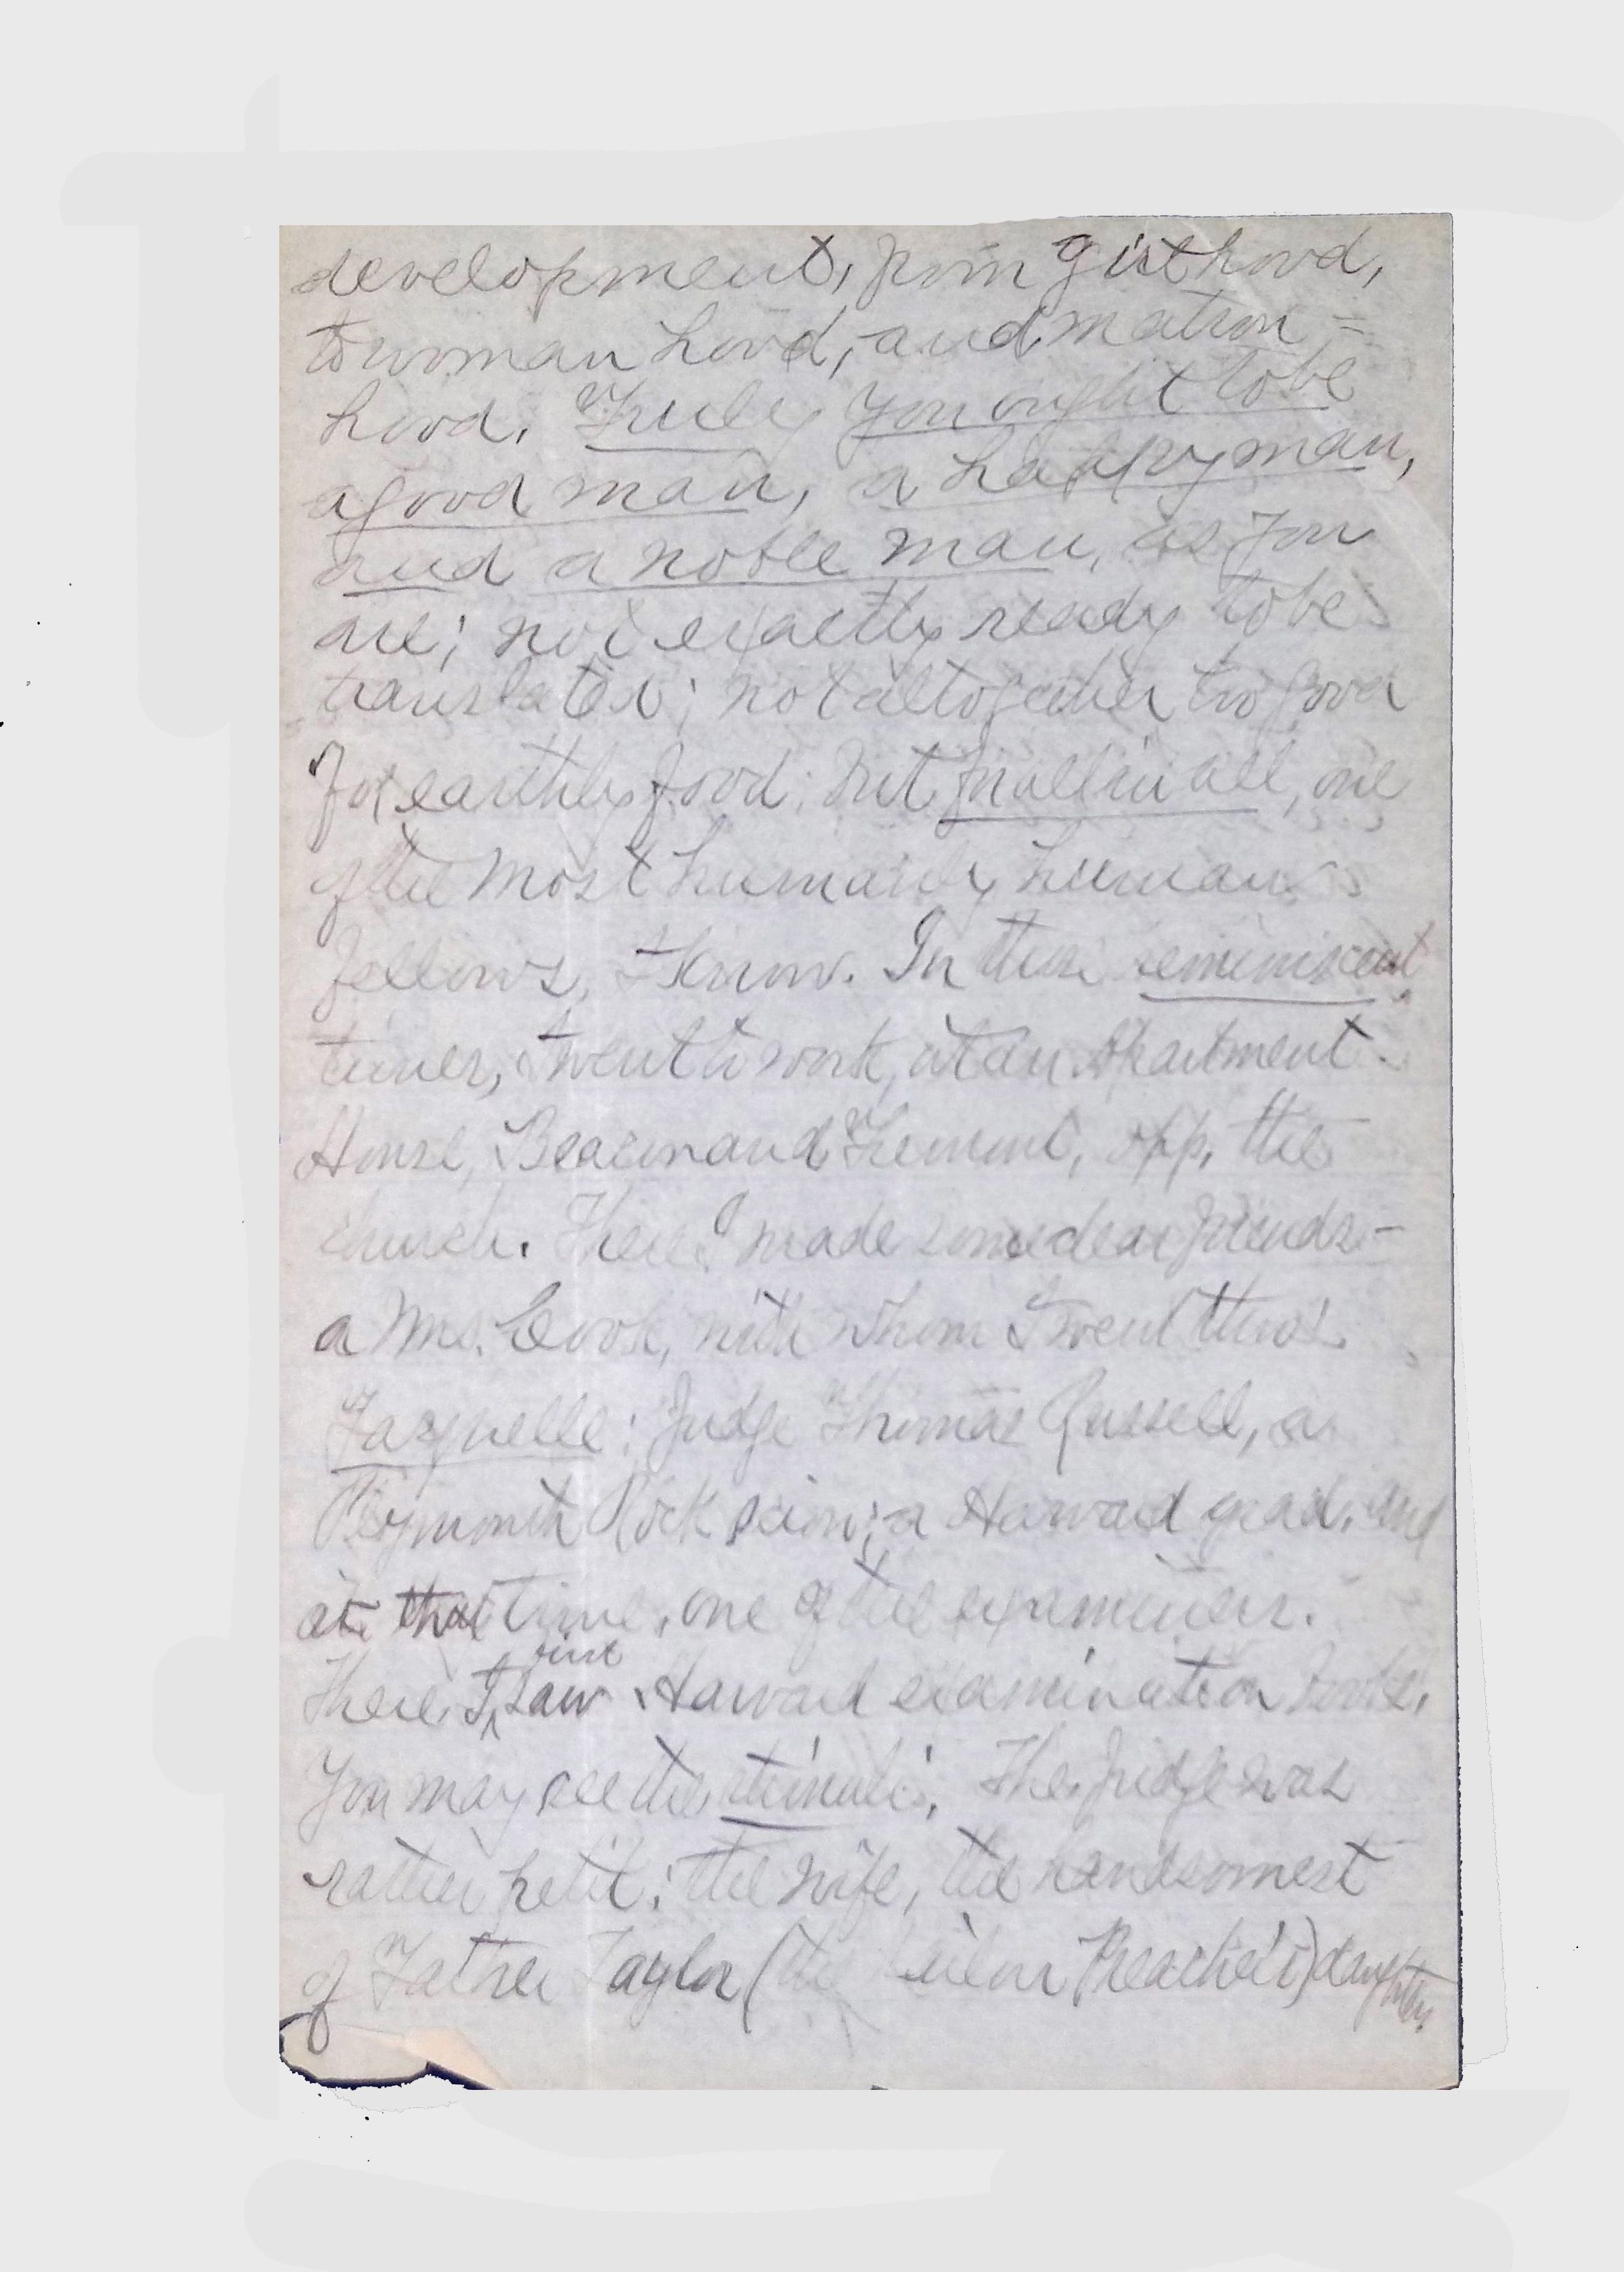 development, from girlhood,
to womanhood, and matron =
hood. Truly you ought to be
a good man, a happy man,
and a noble man, as you
are; not exactly ready to be
translated; not altogether too good
for earthly food; but in all in all, one
of the most humanly human
fellows, I know. In these reminiscent
times, I went to work, at an Apartment
House, Beacon and Tremont, opp. the
church. There I made some dear friends—
a Mrs. Cook, with whom I went thro'
Judge Thomas Russell, a
Plymouth Rock scion; a Harvard grad. and
at that time, one of the examiners.
There, I first saw Harvard examination books.
You may see the stimuli. The Judge was
rather petit; the wife, the handsomest
of Father Taylor (the Sailor Preacher's) daughters.